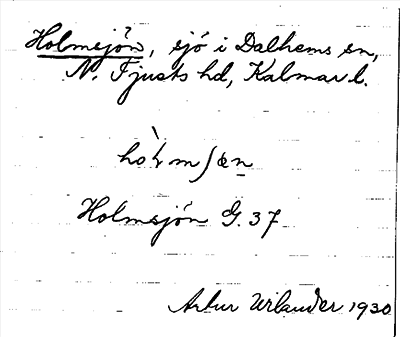 Holmsjön, sjö i Dalhems sn,
N. Tjusts hd, Kalmar l.
Holmsjön G. 37
Artur Urlander 1930